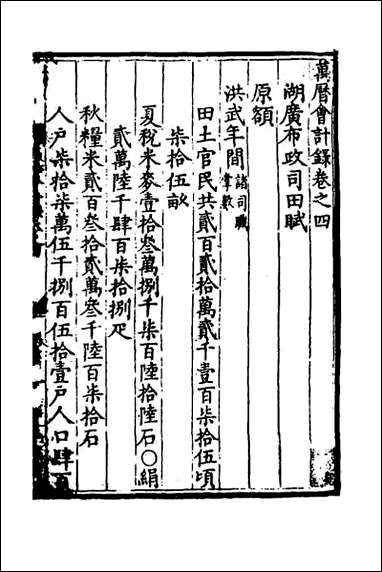 萬曆會計錄卷之四
湖廣布政司田賦
原額
洪武年間諸司職掌數
田土官民共貳百貳拾萬貳千壹百柒拾伍頃
柒拾伍畝
夏稅米麥壹拾叁萬捌千柒百陸拾陸石〇絹
貳萬陸千肆百柒拾捌疋
秋糧米貳百叁拾貳萬叁千陸百柒拾石
人戶柒拾柒萬伍千捌百伍拾壹戶人口肆百